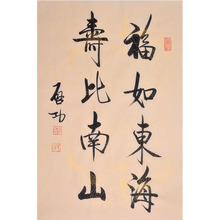 福如東海
壽比南山
啟功